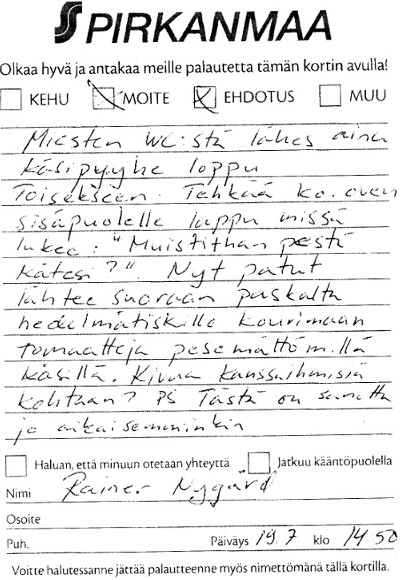 S PIRKANMAA
Olkaa hyvä ja antakaa meille palautetta tämän kortin avulla!
KEHU MOITE EHDOTUS MUU
Miesten WC:stä lähes aina
käsipyyhe loppu
Toisekseen. Tehkää ko. oven
sisäpuolelle lappu missä
lukee: "Muistithan pestä
kätesi?". Nyt patut
lähtee suoraan paskalta
hedelmätiskille kourimaan
tomaatteja pesemättömillä
käsillä. Kivaa kanssaihmisiä
kohtaan? PS Tästä on sanottu
jo aikaisemminkin
Haluan, että minuun otetaan yhteyttä Jatkuu kääntöpuolella
Nimi Rainer Nygård
Osoite
Puh. Päiväys 19.7 klo 14.50
Voitte halutessanne jättää palautteenne myös nimettömänä tällä kortilla.